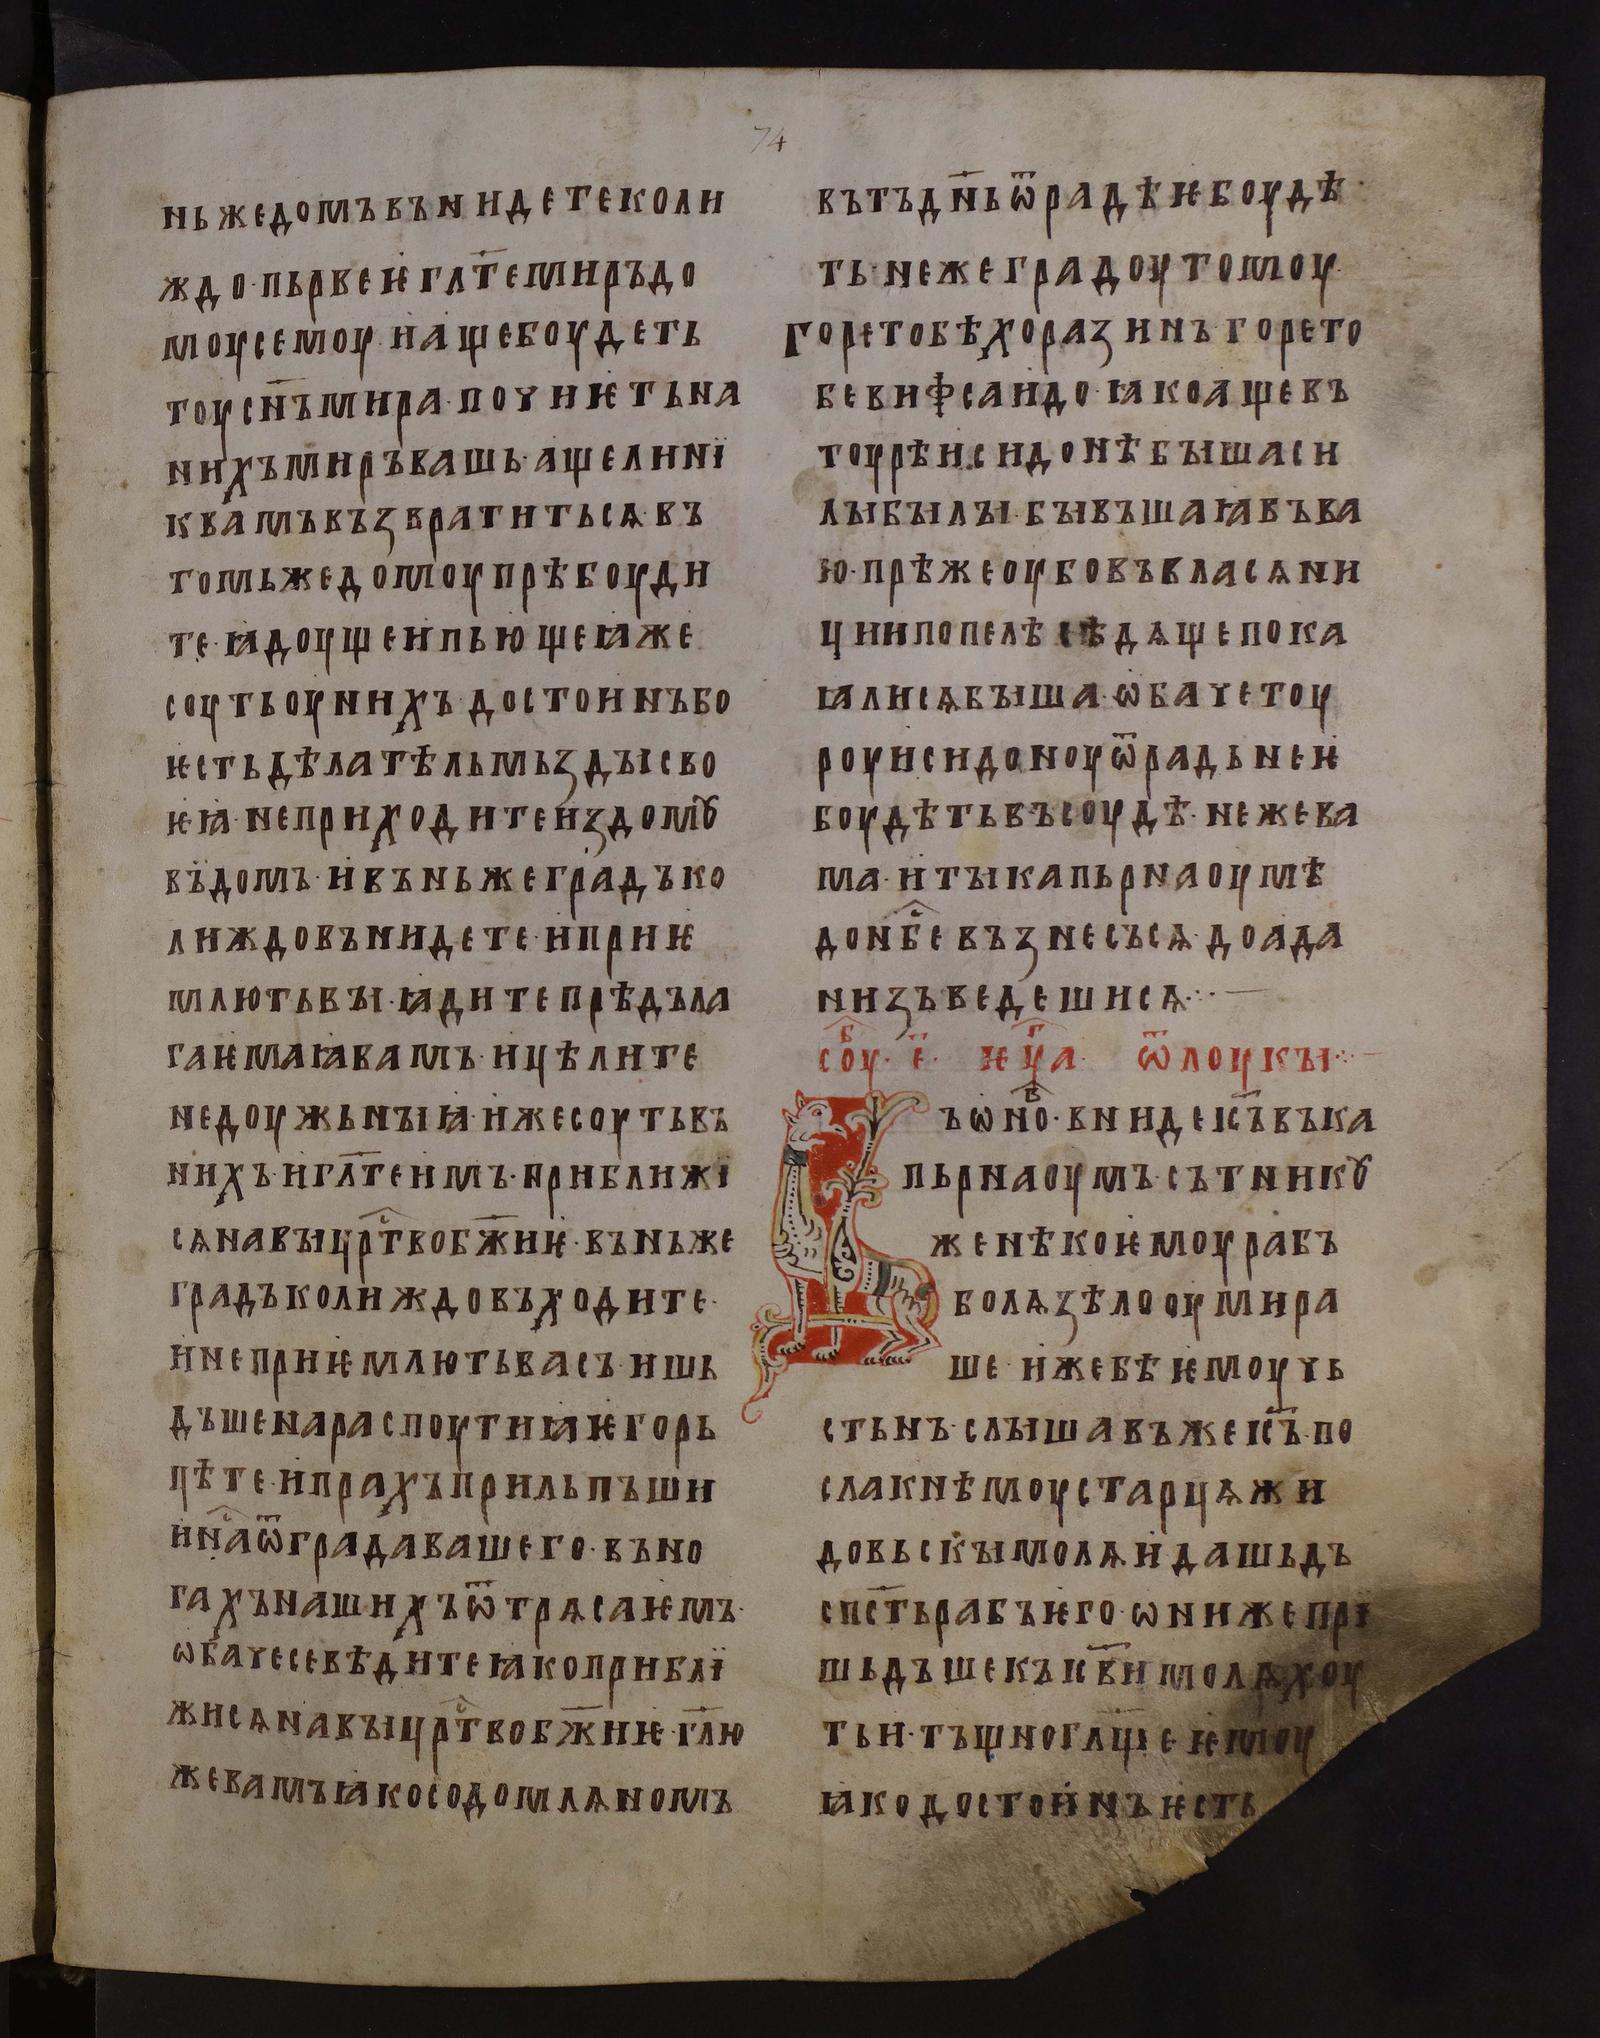 74
ньжедомъвънидетеколи
ждо·пьрвеѥгл҃темиръдо
моусемоу·ꙇащебоудеть
тоусн҃ъмира·почиѥтьна
нихъмиръвашь·ащелинї
квамъвъзвратитьсѧ·въ
томьжедомоупрѣбоуди
те·ꙗдоущеипьющеꙗже
соутьоунихъ·достоинъбо
ѥстьдѣлатѣльмьздысво
ѥꙗ·неприходитеиздомꙋ
въдомъ·ивъньжеградъко
лиждовънидете·иприѥ
млютьвы·ꙗдитепрѣдъла
гаѥмаꙗвамъ·ицѣлите
недоужьныꙗ·ижесоутьвъ
нихъ·игл҃теимъ·приближі
сѧнавыцр҃ⷭтвобж҃иѥ·въньже
градъколиждовъходите·
инеприѥмлютьвасъ·ишь
дъшенараспоутиꙗѥгорь
цѣте·ипрахъприльпъши
инⷭаѿградавашего·въно
гахънашихъѿтрѧсаѥмъ·
ѡбачесевѣдитеꙗкоприблї
жисѧнавыцр҃ⷭтвобж҃иѥ·гл҃ю
жевамъꙗкосодомлѧномъ
вътъдн҃ьѿрадѣѥбоудѣ
ть·нежеградоутомоу·
горетобѣхоразинъ·горето
бевифсаидо·ꙗкоащевъ
тоурѣисидонѣбышаси
лыбылы·бывъшаꙗвъва
ю·прѣжеоубовъвласѧни
циипопелѣсѣдѧщепока
ꙗлисѧбыша·ѡбачетоу
роуисидоноуѿрадьнеѥ
боудѣтьвъсоудѣ·нежева
ма·итыкапьрнаоумѣ
донⷭбевъзнесъсѧ·доада
низъведешисѧ·
соуⷠ·є҃·ѥуⷢа·ѿлоукы·
ъѡноⷡ·внидеіс҃ъвъка
пьрнаоумъ·сътникꙋ
женѣкоѥмоурабъ
болѧзѣлооумира
ше·ижебѣѥмоучь
стьнъ·слышавъжеіс҃ъ·по
слакнѣмоустарцѧжи
довьскымолѧидашьдъ
сп҃стьрабъѥго·ѡнижепрі
шьдъшекъісв҃имолѧхоу
тьи·тъщногл҃щеѥмоу
ꙗкодостоинъѥсть